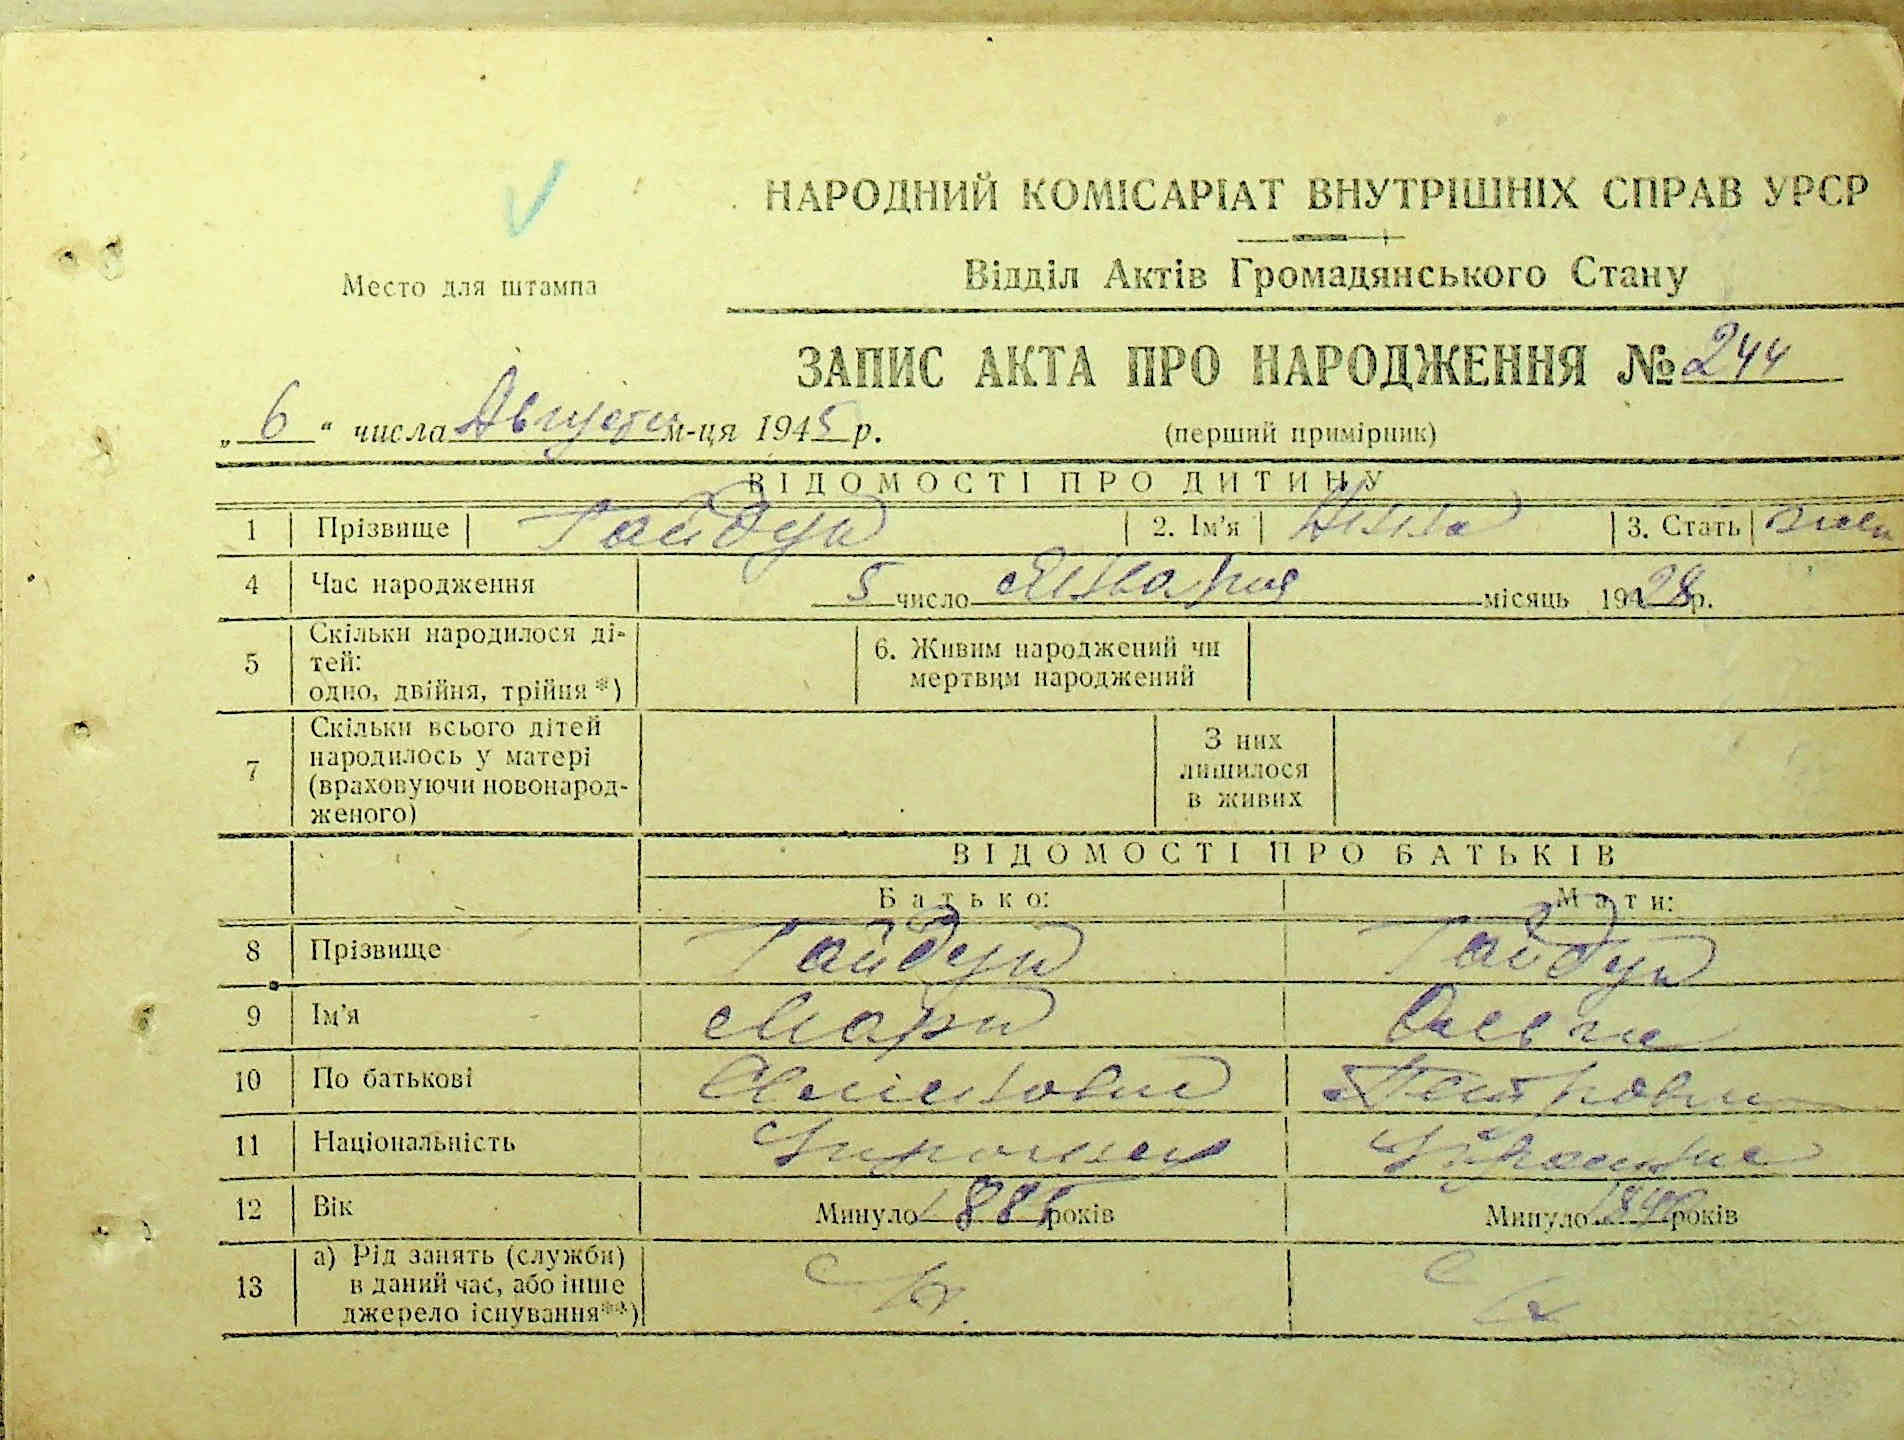 НАРОДНИЙ КОМІСАРІАТ ВНУТРІШНІХ СПРАВ УРСР
Место для штампа
Відділ Актів Громадянського Стану
ЗАПИС АКТА ПРО НАРОДЖЕННЯ № 244
„6“ числа Августа м-ця 1945 р.
(перший примірник)
ВІДОМОСТІ ПРО ДИТИНУ
1 Прізвище Гайдук 2. Ім'я Анна 3. Стать
4 Час народження 5 число Января місяць 1928 р.
5 Скільки народилося ді-
тей:
одно, двійня, трійня *)
6. Живим народжений чи
мертвим народжений
7 Скільки всього дітей
народилось у матері
(враховуючи новонарод-
женого)
З них
лишилося
в живих
ВІДОМОСТІ ПРО БАТЬКІВ
Батько: Мати:
8 Прізвище Гайдук Гайдук
9 Ім'я Марк
10 По батькові Петровна
11 Національність Украинец Украинка
12 Вік Минуло років Минуло років
13 а) Рід занять (служби)
в даний час, або інше
джерело існування**)